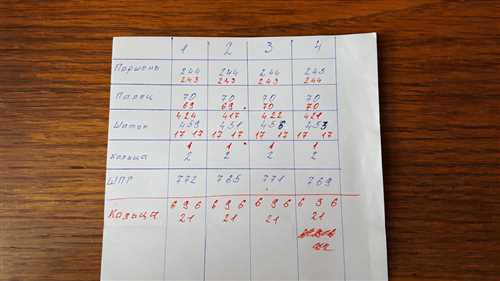 1 2 3 4
Поршень 244 244 244 245
243 243 243 244
Палец 70 70 70 70
69 69 70 70
424 417 422 421
Шатон 459 451 456 453
17 17 17 17 17 17 17 17
1 1 1 1
Кольца 2 2 2 2
ШПГ 772 765 771 769
Кольца 6 9 6 6 9 6 6 9 6 6 9 6
21 21 21 21